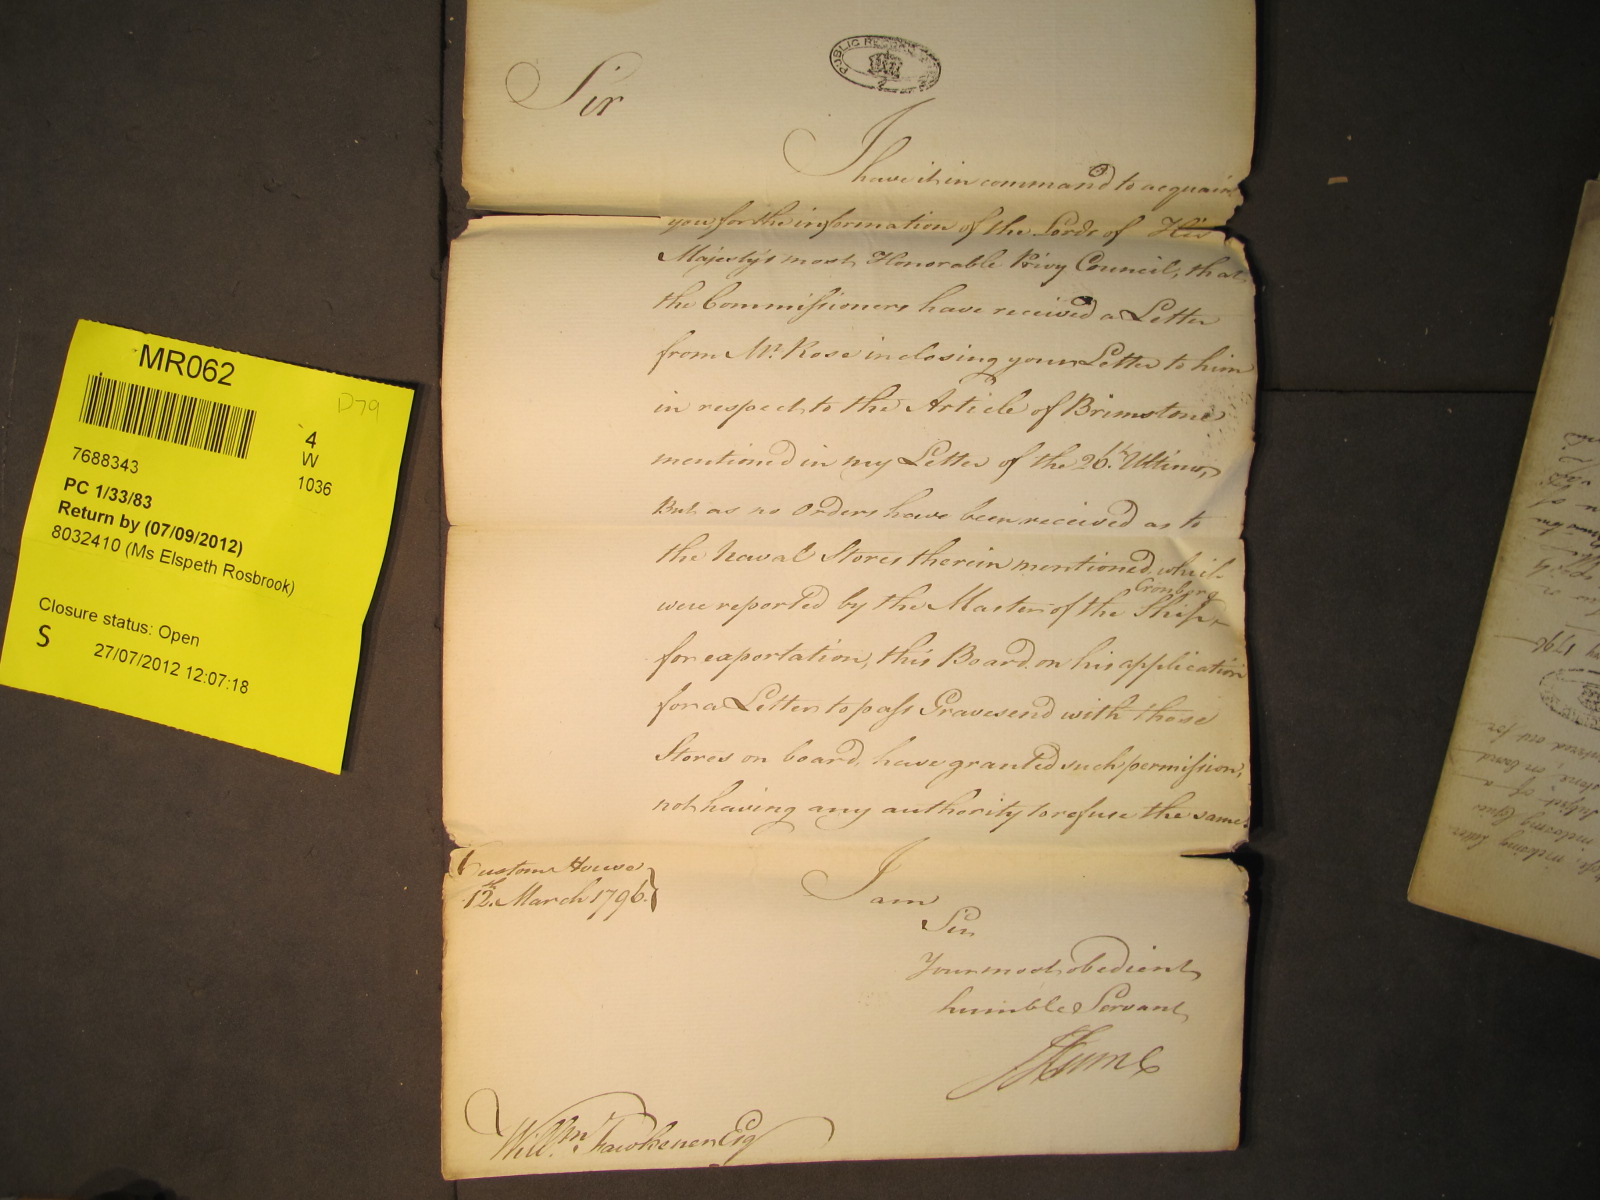 PUBLIC RECORD
Sir
I
have it in command to acquaint
you for the information of the Lords of His
Majesty's most Honorable Privy Council, that
the Commissioners have received a Letter
from Mr. Rose inclosing your Letter to him
in respect to the Article of Brimstone
mentioned in my Letter of the 26th. Ultimo,
But as no Orders have been received as to
the Naval Stores therein mentioned, which
were reported by the Master of the Ship Cronberg
for exportation, this Board, on his application
for a Letter to pass Gravesend with those
Stores on board, have granted such permission,
not having any authority to refuse the same.
Custom House
12th. March 1796.
I am
Sir
Your most obedient
humble Servant
JHume
Willm. Fawkener Esq
MR062
D79
4
W
1036
7688343
PC 1/33/83
Return by (07/09/2012)
8032410 (Ms Elspeth Rosbrook)
Closure status: Open
S
27/07/2012 12:07:18
1796